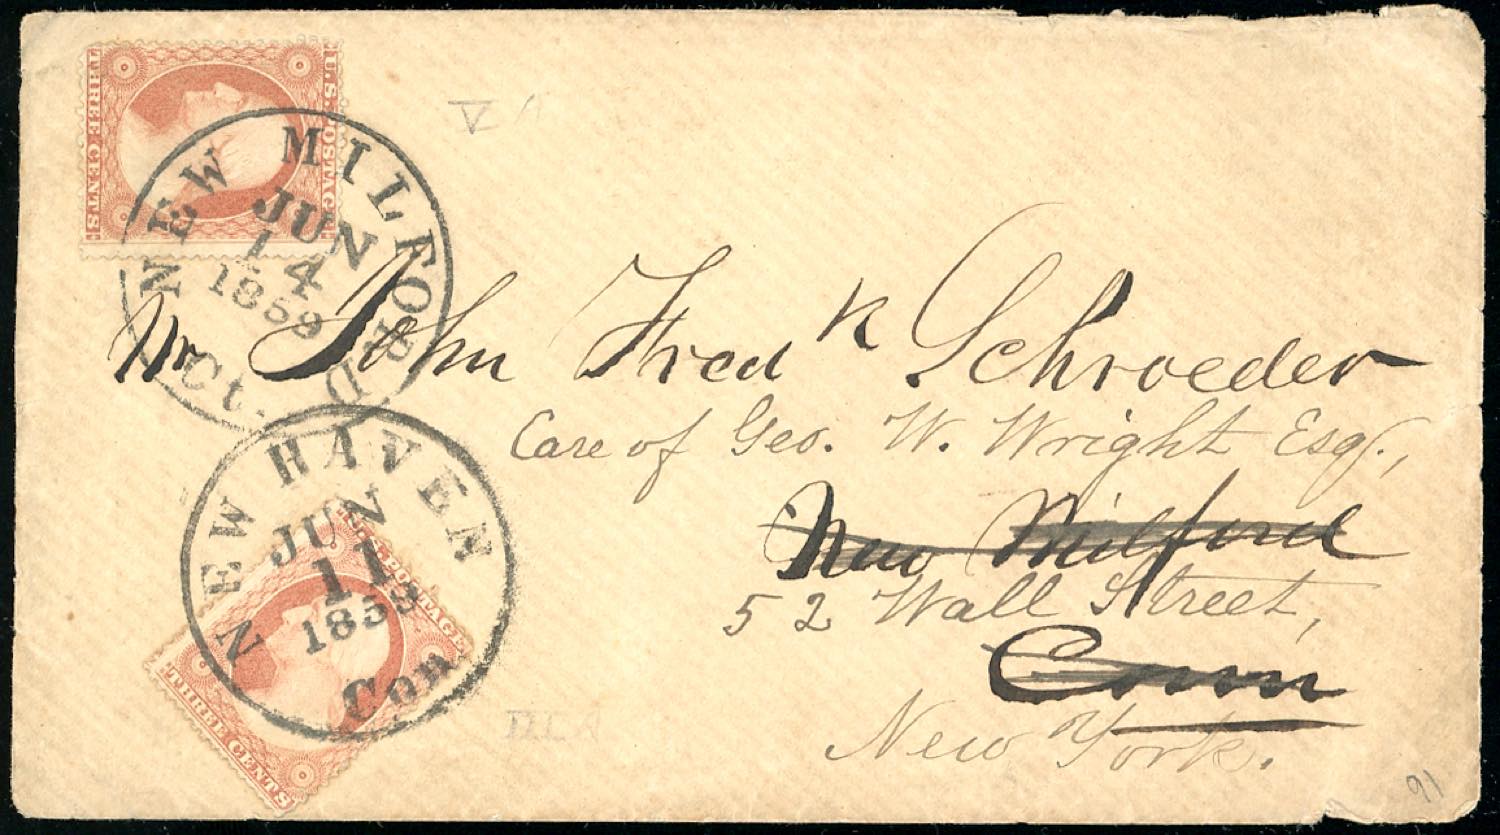 U.S. POSTAGE
THREE CENTS
V A
NEW MILFORD
JUN
14
1859
Ct.
Mr John Fredk Schroeder
Care of Geo. W. Wright Esq.,
New Milford
52 Wall Street,
Conn
New York.
NEW HAVEN
JUN
11
1859
Con
U.S. POSTAGE
THREE CENTS
91